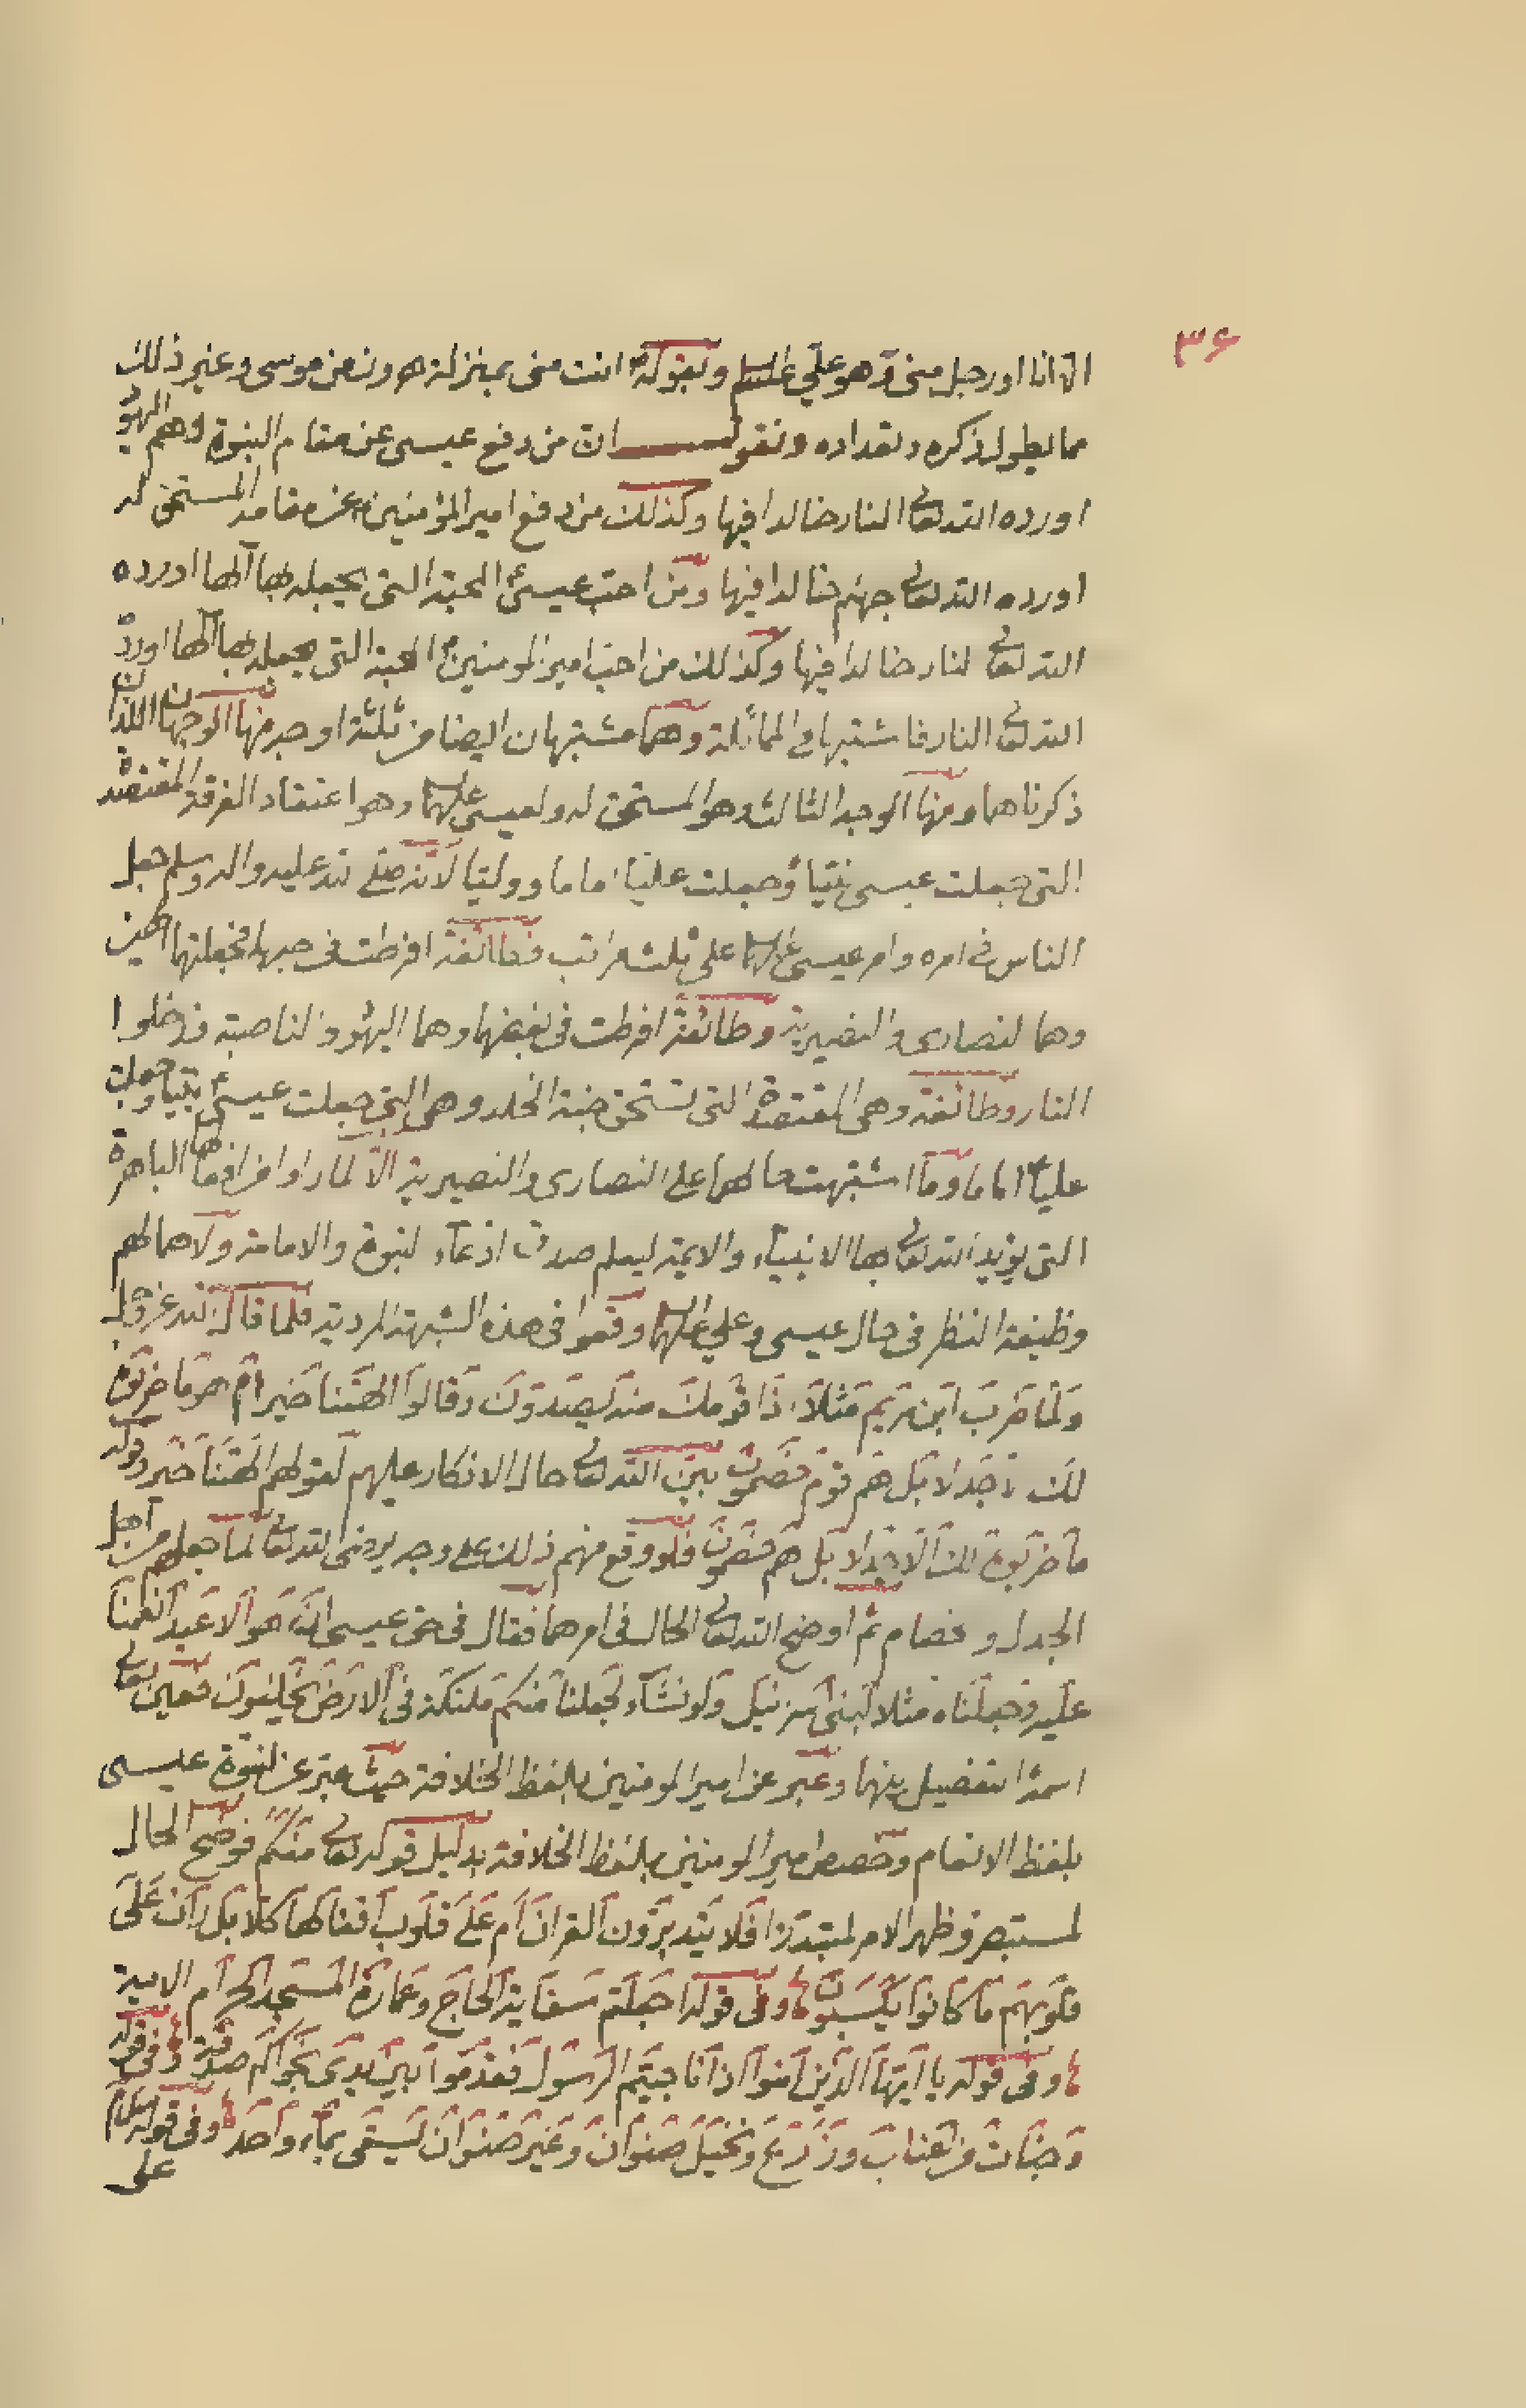 ٣۶
الا انا او رجل منى وهو علي عليه السلام وبقوله انت منى بمنزلة هرون من موسى وغير ذلك
مما يطول ذكره وتعداده ونقول ان من دفع عيسى عن مقام النبوة وهم اليهود
اورده الله تعالى النار خالدا فيها وكذلك من دفع امير المؤمنين عن مقامه المستحق له
اورده الله تعالى جهنم خالدا فيها ومن احب عيسى المحبة التى يجعله بها آلها اورده
الله تعالى النار خالدا فيها وكذلك من احب امير المومنين المحبة التى يجعله بها آلها اورده
الله تعالى النار فاشتبها في المماثلة وهما مشتبهان ايضا من ثلثة اوجه منها الوجهان اللذان
ذكرناهما ومنها الوجه الثالث وهو المستحق له ولعيسى عليهما السلام وهو اعتقاد الفرقة المقتصدة
التى جعلت عيسى نبيّا وجعلت عليّا اماما ووليّا لانّه صلى الله عليه واله وسلم جعل
الناس فى امره وامر عيسى عليهما السلام على ثلث مراتب فطائفة افرطت فى حبهما فجعلتهما الهين
وهما النصارى والنصيرية وطائفة افرطت فى بغضهما وهما اليهود والناصبة فدخلوا
النار وطائفة وهى المقتصدة التى تستحق جنة الخلد وهى التى جعلت عيسى نبيّا وجعلت
عليّا اماما وما اشتبهت حالهما على النصارى والنصيرية الا لما راوا من افعالهما الباهرة
التى يؤيد الله تعالى بها الانبياء والايمة ليعلم صدق ادعآء النبوة والامامة ولاهمالهم
وظيفة النظر فى حال عيسى وعلي عليهما السلام وقعوا فى هذه الشبهة المردية فلما قال الله عز وجل
وَلَمّا ضُرِبَ ابن مَريم مَثَلاً اِذَا قَومُكَ منه يَصِدّونَ وَقَالوا الهتنا خَير اَم هو مَا ضَرَبوه
لَكَ الا جَدَلا بَل هُم قَوم خَصِمُون بيّن الله تعالى حال الانكار عليهم لقولهم الهتنا خير وقوله
ما ضربوه لك الا جدلا بل هم خصمون فلو وقع منهم ذلك على وجه يرضى الله تعالى لما جعلهم من اهل
الجدل والخصام ثم اوضح الله تعالى الحال فى امرهما فقال فى حق عيسى ان هو الا عبد انعمنا
عليه وجعلناه مثلا لبنى اسرائيل ولو نشآء لجعلنا منكم ملئكة فى الارض يخلفون فبين تعالى
التفضيل بينهما وعبّر عن امير المومنين بلفظ الخلافة حيث عبّر عن نبوة عيسى
بلفظ الانعام وخصص امير المومنين بلفظ الخلافة بدليل قوله تعالى منكم فوضح الحال
لمستبصر وظهر الامر لمتبدّر افلا يتدبرون القران اَم عَلَى قلوب اقفالها كلا بل ران عَلَى
قلوبهم ما كانوا يكسبون وفى قوله اجعلتم سقاية الحاج وعمارة المسجد الحرام الاية
وفى قوله يا ايّها الذين آمنوا اذا ناجيتم الرسول فقدموا بين يدى نجواكم صدقة وفى قوله
وجنات من اعناب وزرع ونخيل صنوان وغير صنوان يسقى بمآء واحد وفى قوله
على